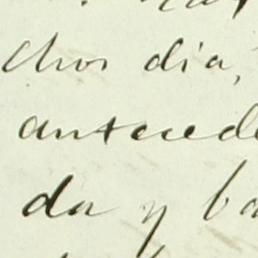 chos dia,
antecede
da y ba